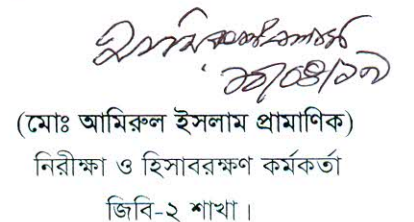 (মোঃ আমিরুল ইসলাম প্রামাণিক)
নিরীক্ষা ও হিসাবরক্ষণ কর্মকর্তা
জিবি-২ শাখা।